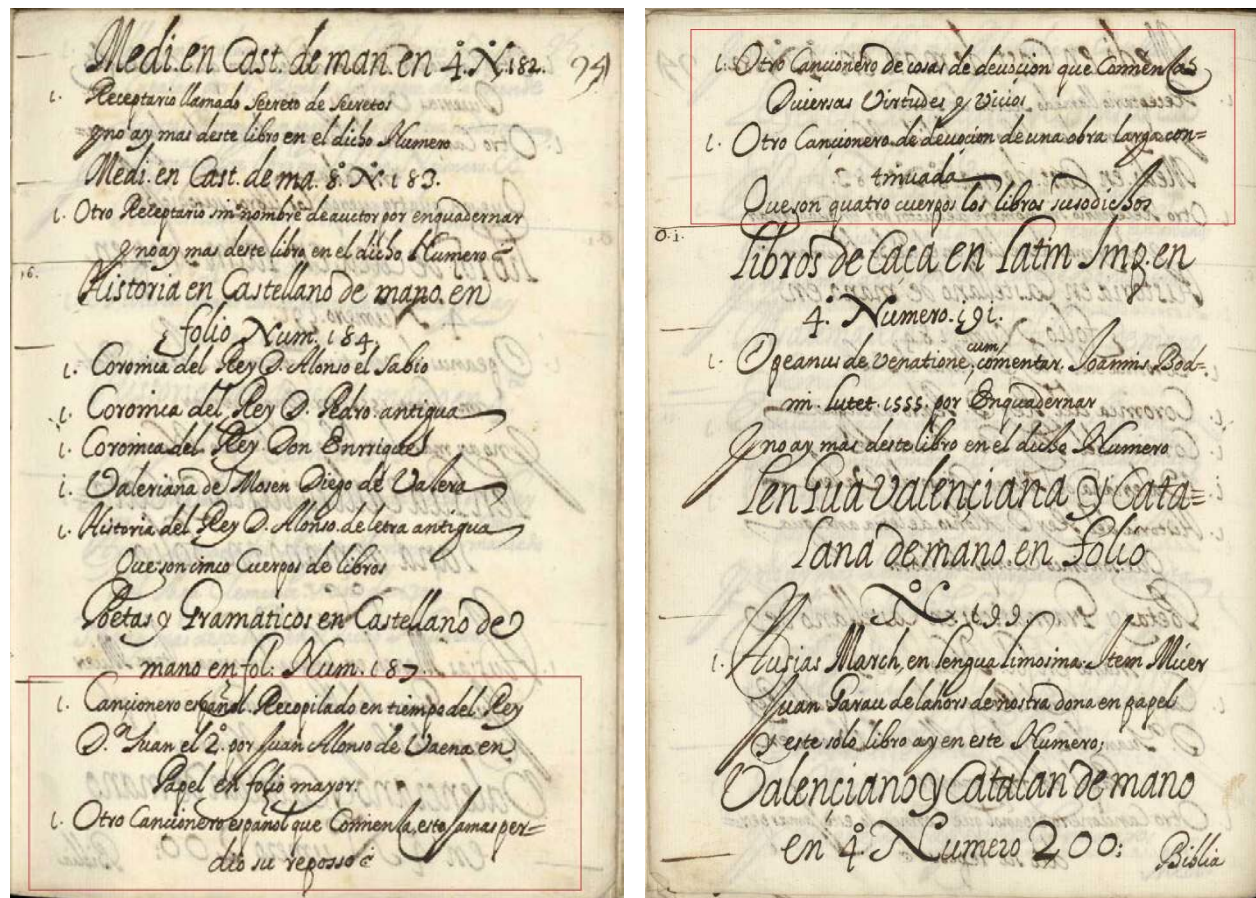 Medi. en Cast. de man. en 4.º N.º 182.
94
1. Receptario llamado Secreto de Secretos
y no ay mas deste libro en el dicho Numero
Medi. en Cast. de ma. 8.º N.º 183.
1. Otro Receptario sin nombre de auctor por enquadernar
y no ay mas deste libro en el dicho Numero
16.
Historia en Castellano de mano. en
folio Num. 184.
1. Coronica del Rey D. Alonso el Sabio
1. Coronica del Rey D. Pedro. antigua
1. Coronica del Rey Don Enrrique
1. Valeriana de Mosen Diego de Valera
1. Historia del Rey D. Alonso. de letra antigua
Que son cinco Cuerpos de libros
Poetas y Gramaticos en Castellano de
mano en fol: Num. 187.
1. Cancionero español Recopilado en tiempo del Rey
D.ⁿ Juan el 2.º por Juan Alonso de Vaena en
Papel en folio mayor.
1. Otro Cancionero español que Comença, esto jamas per=
dio su reposso
1. Otro Cancionero de cosas de devocion que Comença las
Diversas Virtudes y Vicios
1. Otro Cancionero de devocion de una obra larga con=
tinuada
Que son quatro cuerpos los libros susodichos
0.1.
libros de Caça en latin Imp. en
4.º Numero. 191.
1. Opeanus de venatione, cum comentar. Joannis Bod=
ini. Lutet. 1555. por Enquadernar
y no ay mas deste libro en el dicho Numero
lengua valenciana y Cata=
lana de mano. en folio
N.º 199.
1. Ausias March, en lengua limosina. Item Micer
Juan Garau de lahors de nostra dona en papel
y este solo libro ay en este Numero;
Valenciano y Catalan de mano
en 4.º Numero 200:
Biblia